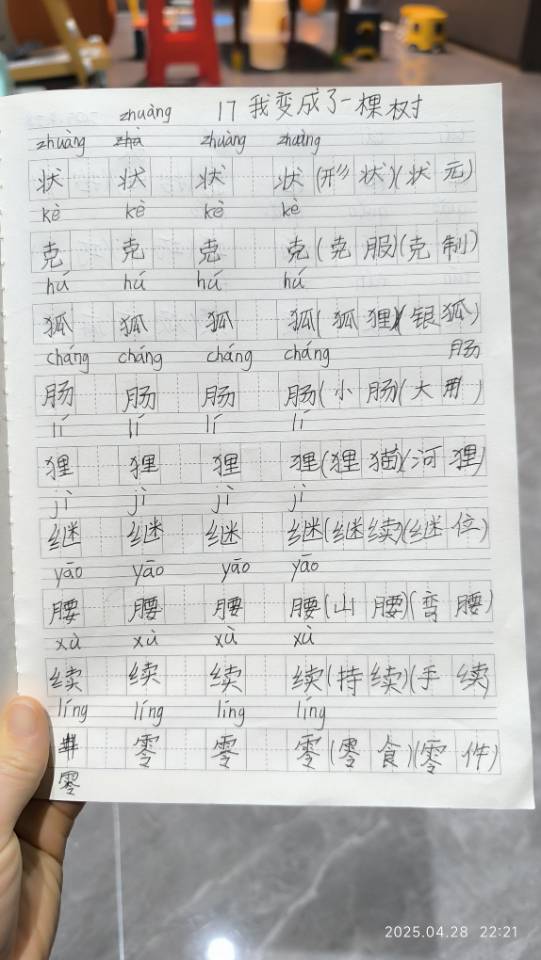 zhuàng 17 我变成了一棵树
zhuàng zhuàng zhuàng
状 状 状 状(形状)(状元)
kè kè kè kè
克 克 克 克(克服)(克制)
hú hú hú hú
狐 狐 狐 狐(狐狸)(银狐)
cháng cháng cháng cháng 肠
肠 肠 肠 肠(小肠)(大)
lí lí lí lí
狸 狸 狸 狸(狸猫)(河狸)
jì jì jì jì
继 继 继 继(继续)(继位)
yāo yāo yāo yāo
腰 腰 腰 腰(山腰)(弯腰)
xù xù xù xù
续 续 续 续(持续)(手续)
líng líng líng líng
零 零 零(零食)(零件)
零
2025.04.28 22:21